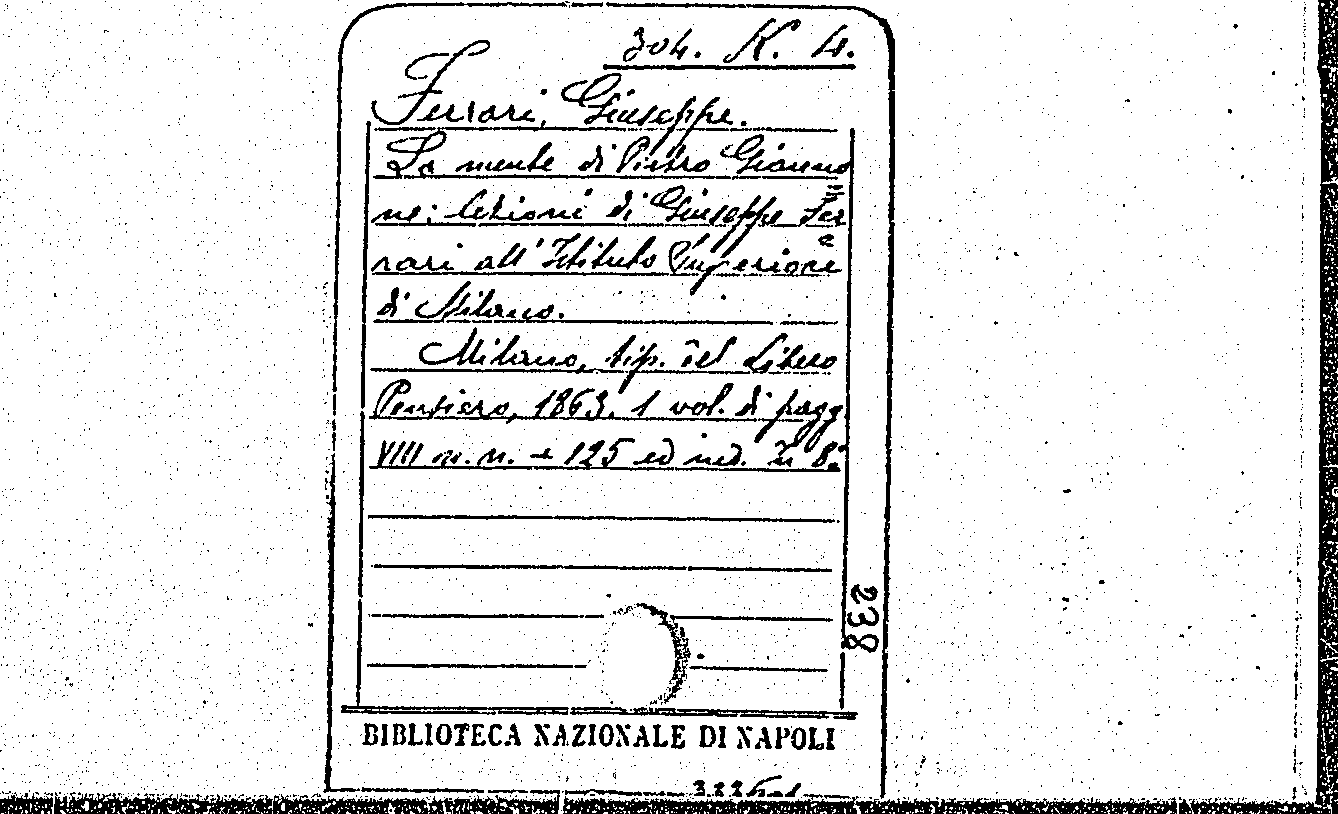 304. K. 4.
Ferrari, Giuseppe.
La mente di Pietro Gianno
ne: lezioni di Giuseppe Fer
rari all' Istituto Superiore
di Milano.
Milano, tip. del Libero
Pensiero, 1863. 1 vol. di pagg
VIII n. n. e 125 ed ind. in 8.°
238
BIBLIOTECA NAZIONALE DI NAPOLI